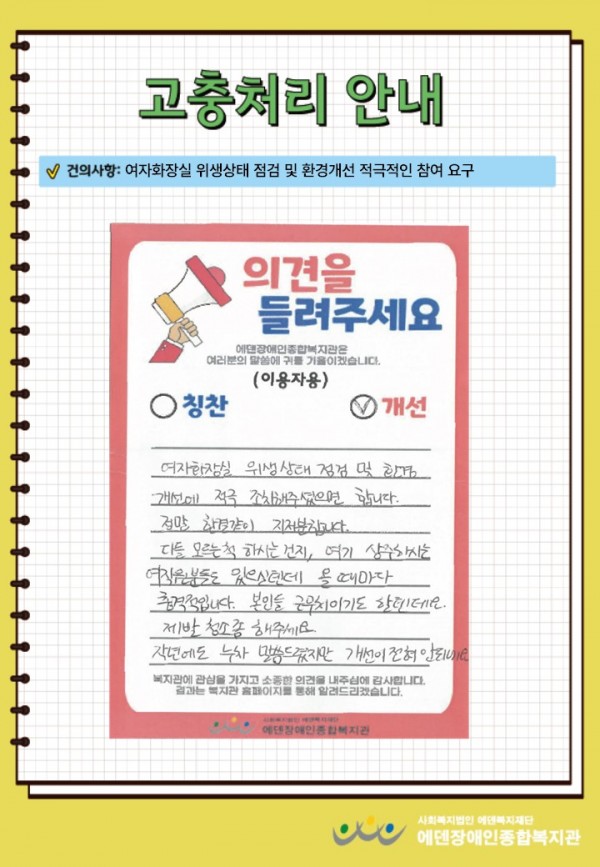 고충처리 안내
건의사항: 여자화장실 위생상태 점검 및 환경개선 적극적인 참여 요구
의견을
들려주세요
에덴장애인종합복지관은
여러분의 말씀에 귀를 기울이겠습니다.
(이용자용)
칭찬 개선
여자화장실 위생상태 점검 및 환경
개선에 적극 조치해주셨으면 합니다.
정말 환경같이 지저분합니다.
다들 모르는척 하시는건지, 여기 상주하시는
여직원분들도 있으실텐데 올때마다
충격적입니다. 본인들 근무지이기도 할텐데요.
제발 청소좀 해주세요.
작년에도 누차 말씀드렸지만 개선이 전혀 안되네요
복지관에 관심을 가지고 소중한 의견을 내주심에 감사합니다.
결과는 복지관 홈페이지를 통해 알려드리겠습니다.
사회복지법인 에덴복지재단
에덴장애인종합복지관
사회복지법인 에덴복지재단
에덴장애인종합복지관